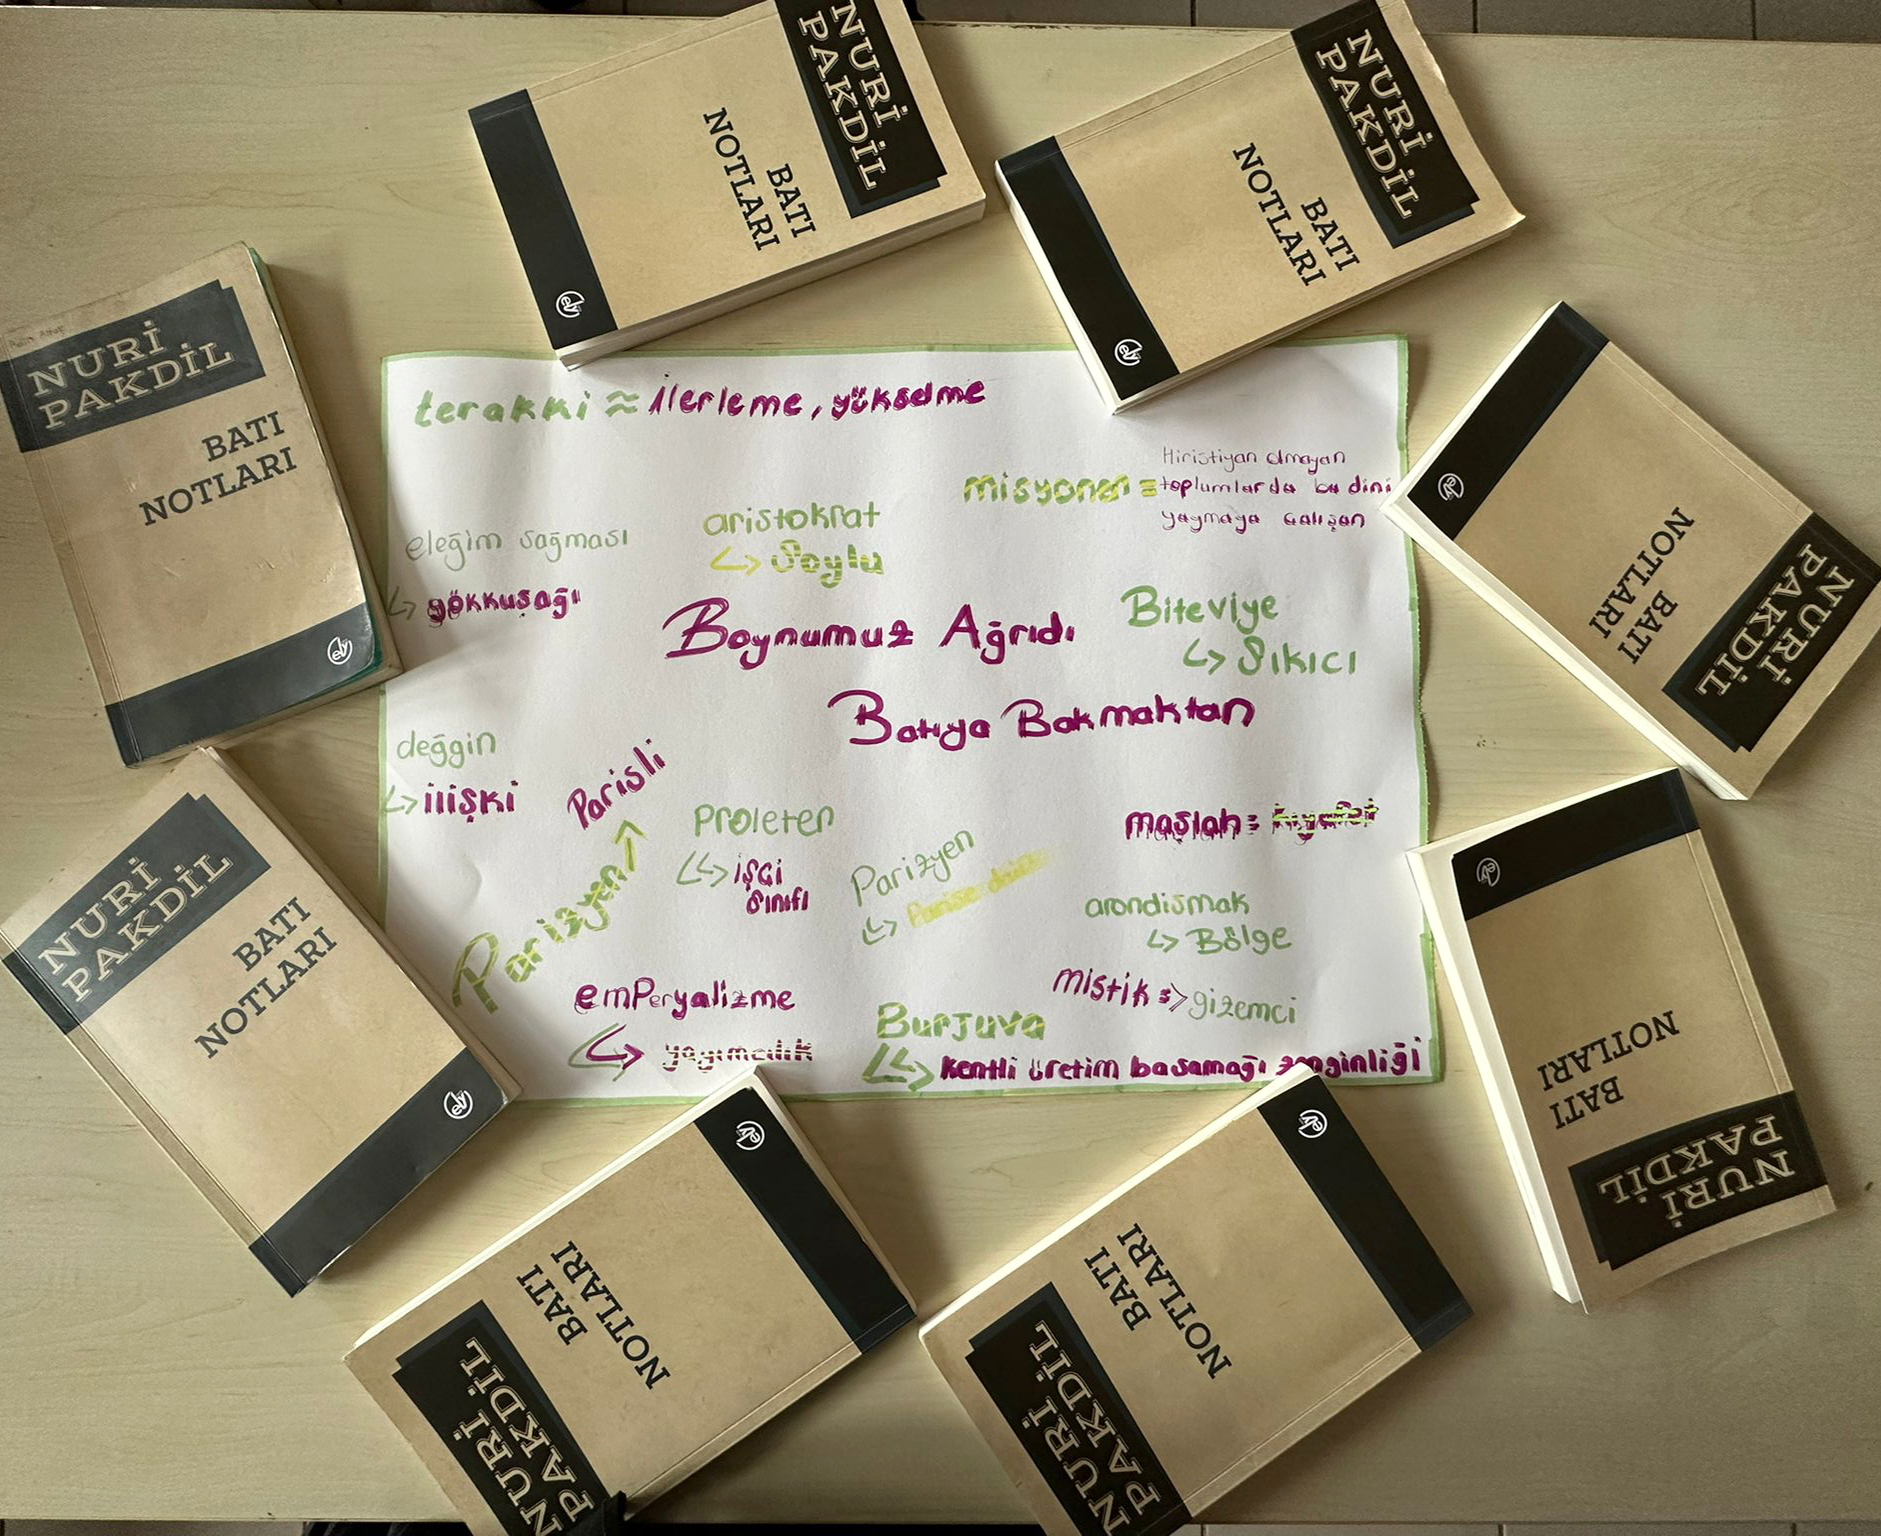 NURİ
PAKDİL
BATI
NOTLARI
NURİ
PAKDİL
BATI
NOTLARI
NURİ
PAKDİL
BATI
NOTLARI
NURİ
PAKDİL
BATI
NOTLARI
terakki ≈ ilerleme, yükselme
misyoner = Hiristiyan olmayan
toplumlarda bu dini
yaymaya çalışan
eleğim sağması
↳ gökkuşağı
aristokrat
↳ Soylu
Boynumuz Ağrıdı
Batıya Bakmaktan
Biteviye
↳ Sıkıcı
değgin
↳ ilişki
Parizyen → Parisli
Proleter
↳ işçi
sınıfı
Parizyen
↳
maşlah = kıyafet
arondismak
↳ Bölge
mistik => gizemci
emperyalizme
↳ yayımcılık
Burjuva
↳ kentli üretim basamağı zenginliği
NURİ
PAKDİL
BATI
NOTLARI
NURİ
PAKDİL
BATI
NOTLARI
NURİ
PAKDİL
BATI
NOTLARI
NURİ
PAKDİL
BATI
NOTLARI
NURİ
PAKDİL
BATI
NOTLARI